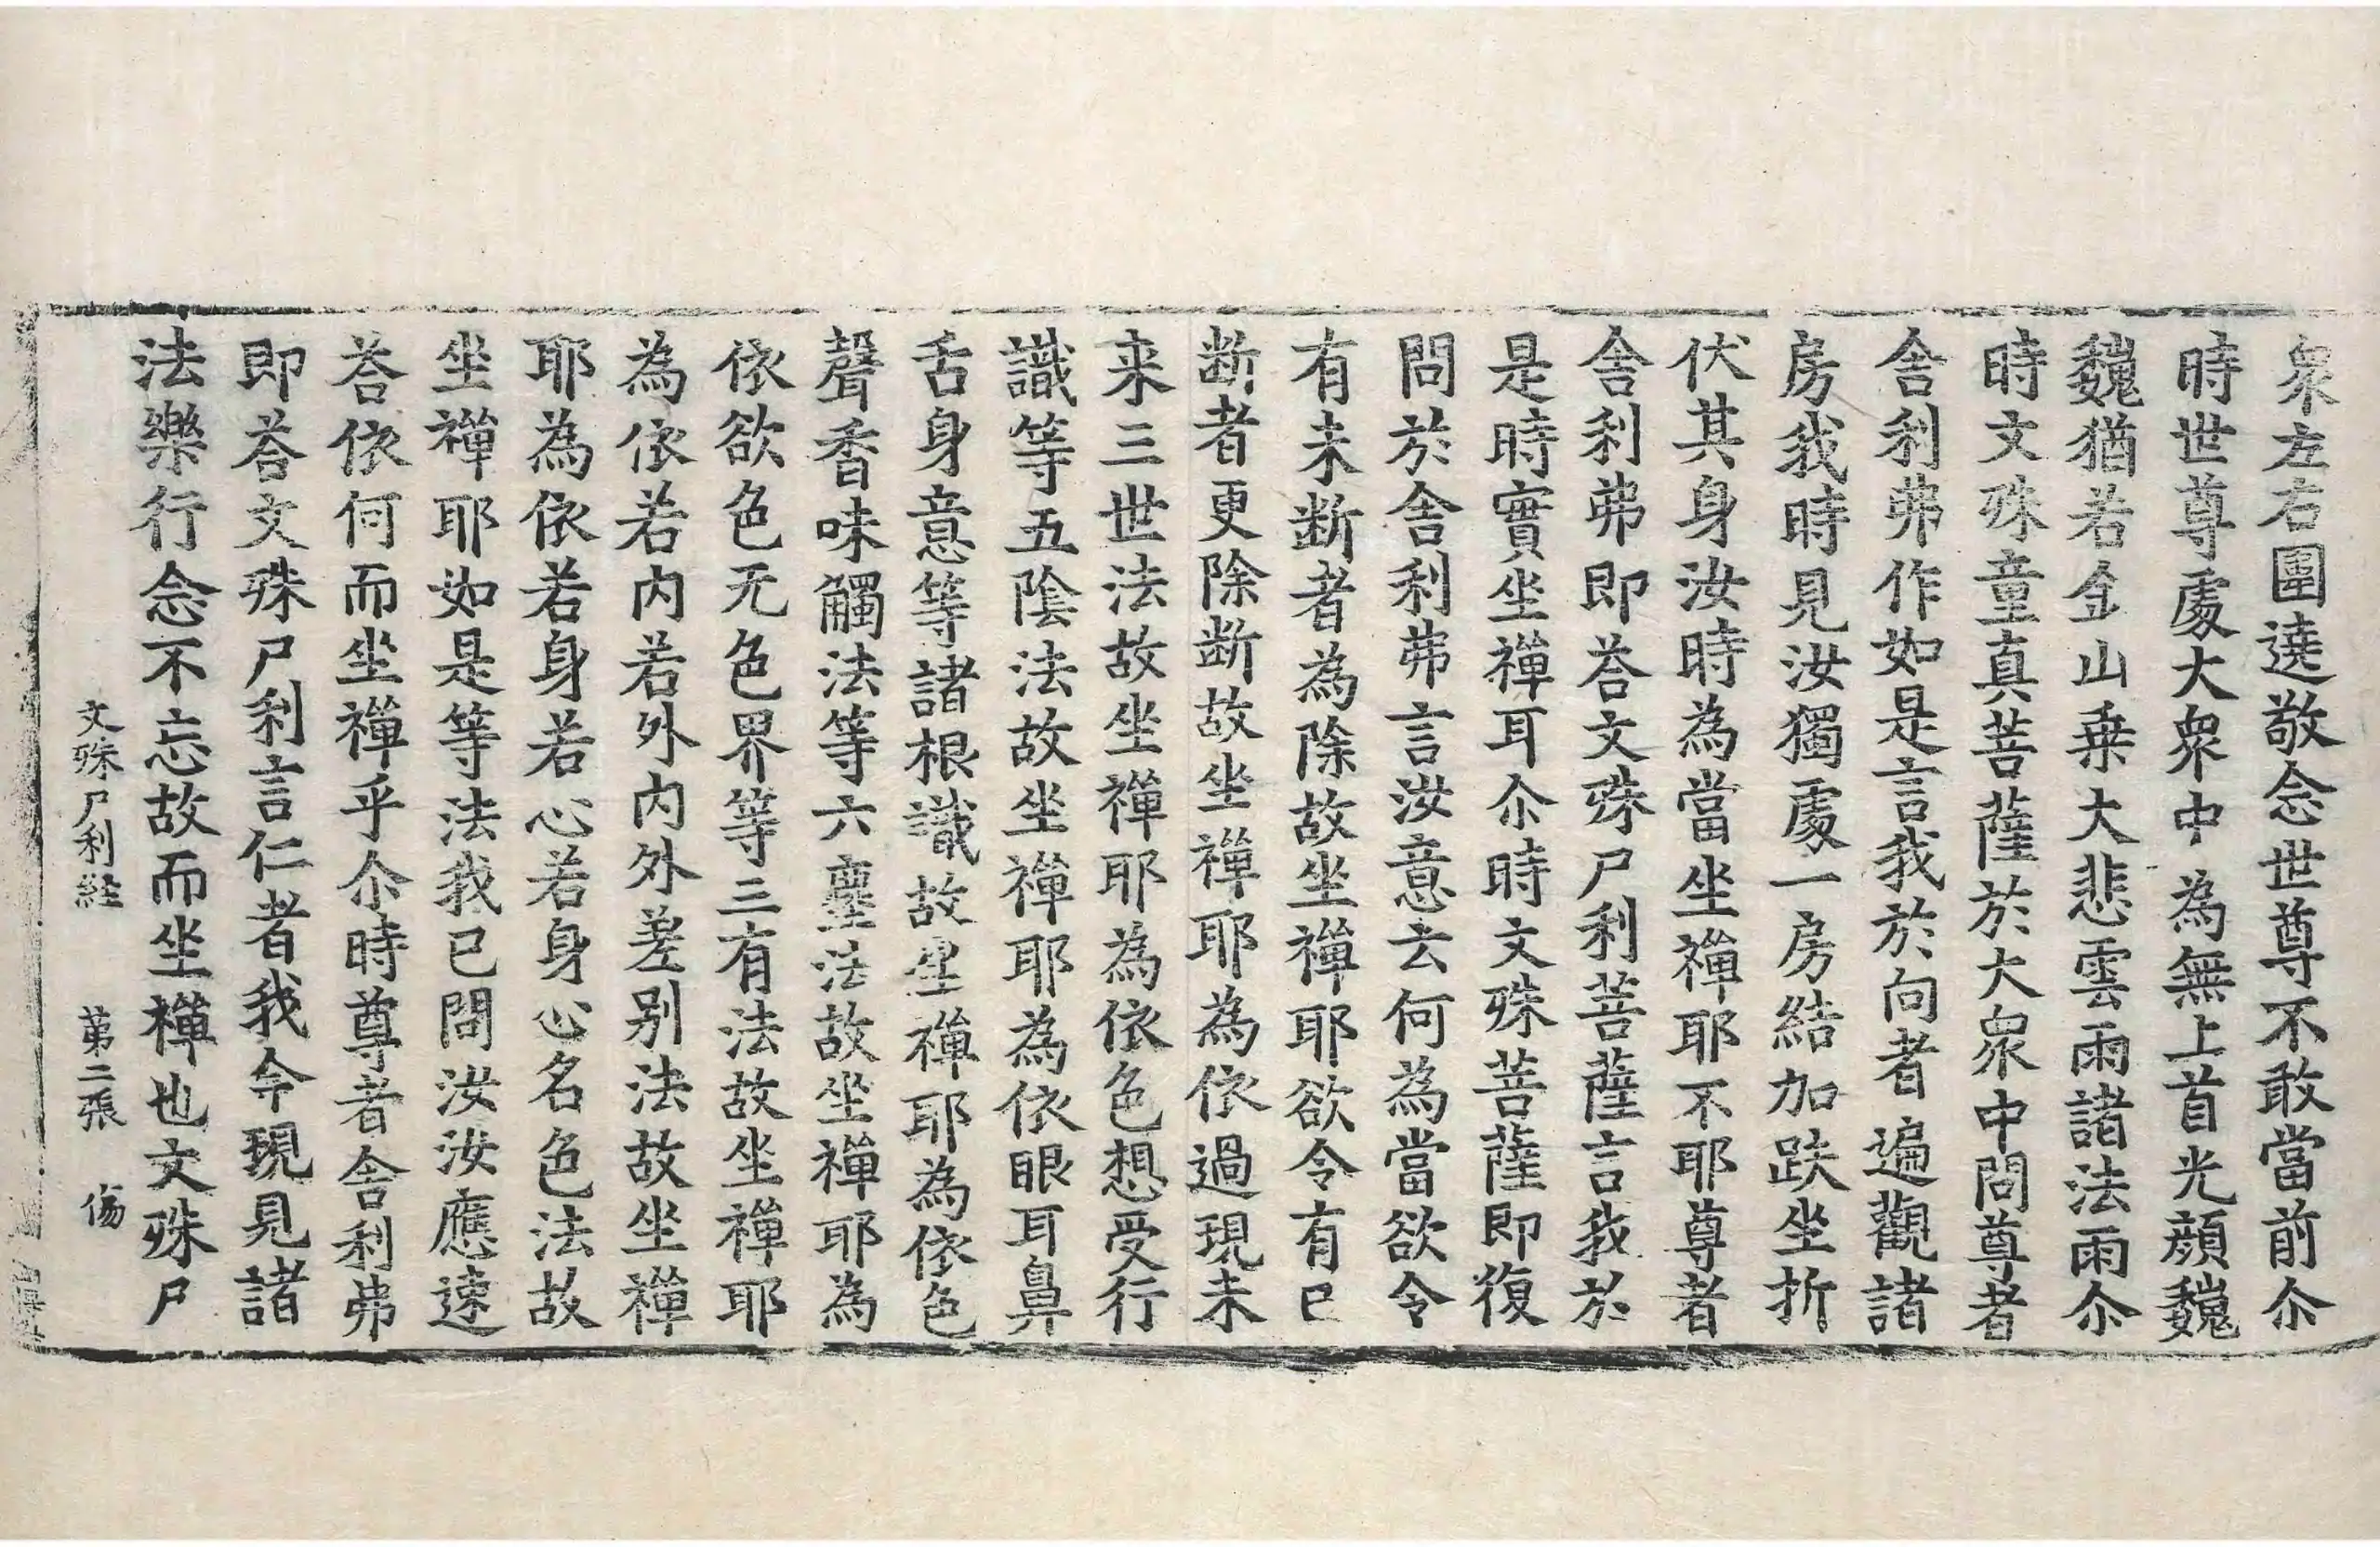 衆左右圍遶敬念世尊不敢當前尒
時世尊處大衆中為無上首光顔巍
巍猶若金山乗大悲雲雨諸法雨尒
時文殊童真菩薩於大衆中問尊者
舎利弗作如是言我於向者遍觀諸
房我時見汝獨處一房結加趺坐折
伏其身汝時為當坐禪耶不耶尊者
舎利弗即荅文殊尸利菩薩言我於
是時實坐禪耳尒時文殊菩薩即復
問於舎利弗言汝意云何為當欲令
有未断者為除故坐禪耶欲令有已
断者更除断故坐禪耶為依過現未
来三世法故坐禪耶為依色想受行
識等五陰法故坐禪耶為依眼耳鼻
舌身意等諸根識故坐禪耶為依色
聲香味觸法等六塵法故坐禪耶為
依欲色无色界等三有法故坐禪耶
為依若内若外内外差别法故坐禪
耶為依若身若心若身心名色法故
坐禪耶如是等法我已問汝汝應速
荅依何而坐禪乎尒時尊者舎利弗
即荅文殊尸利言仁者我今現見諸
法樂行念不忘故而坐禪也文殊尸
文殊尸利経 第二張 傷